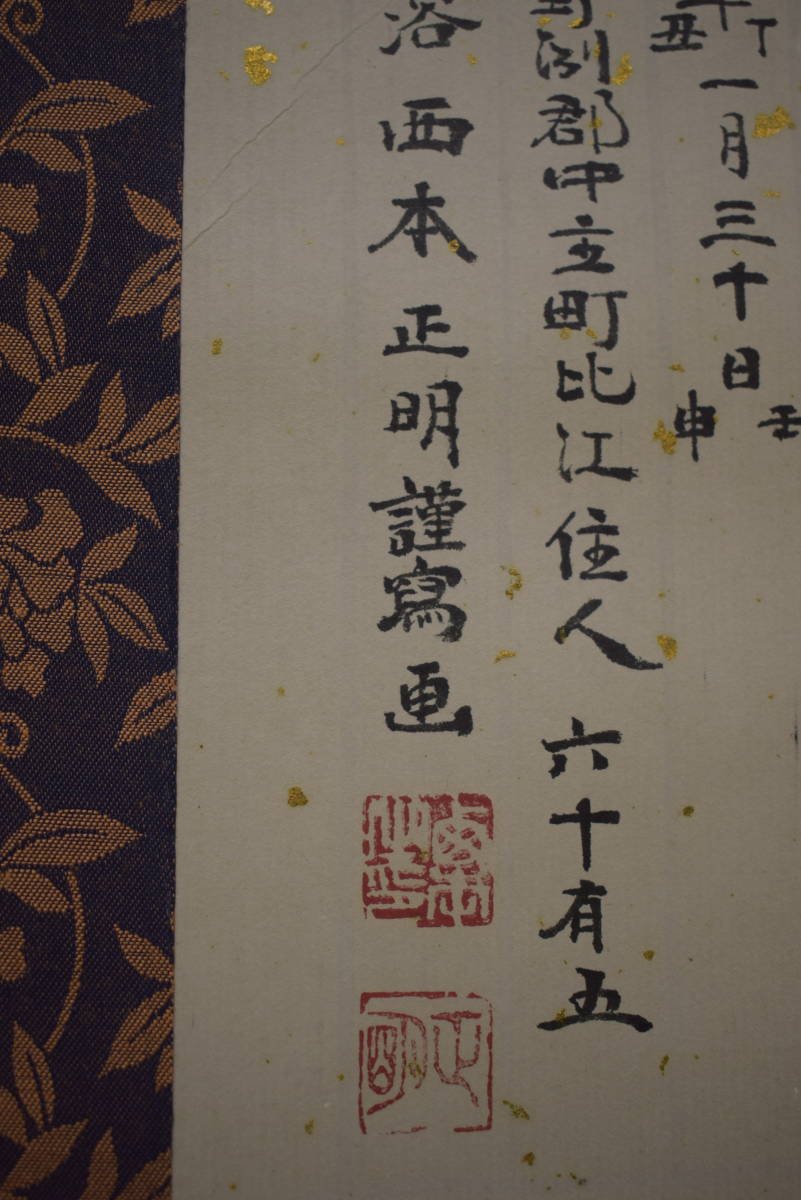 丁丑一月三十日壬申
洲郡中主町比江住人 六十有五
西本正明謹寫画
正明